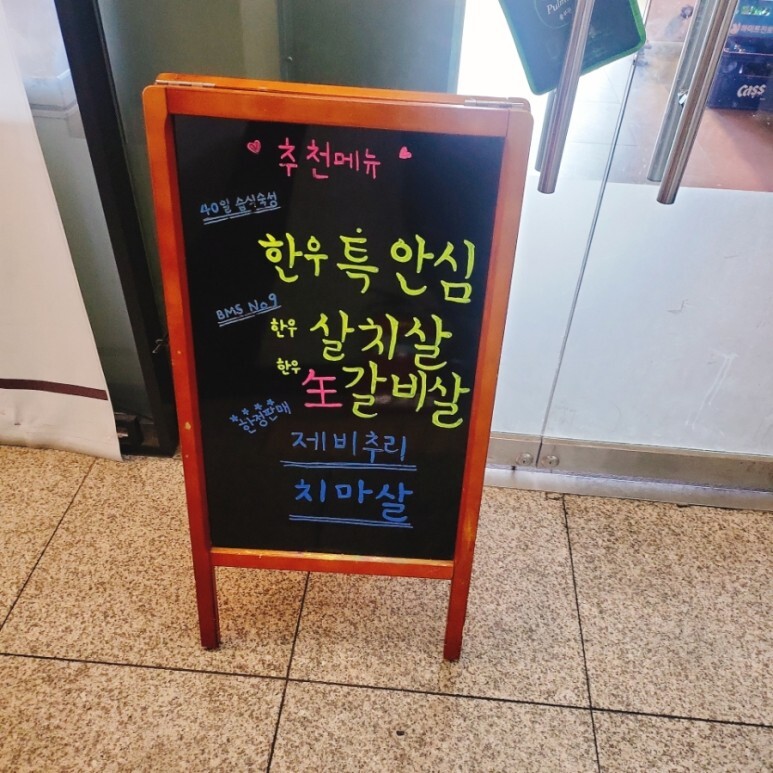 추천메뉴
40일 습식숙성
한우 특 안심
BMS No9
한우 살치살
한우 生갈비살
한정판매
제비추리
치마살
Cass